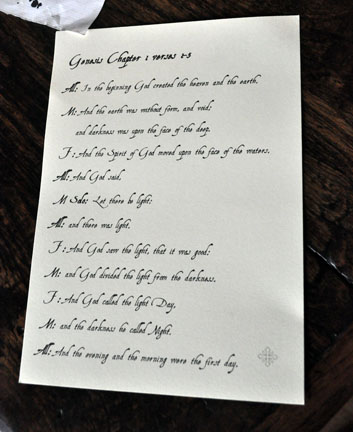 Genesis Chapter 1 verses 1-5
All: In the beginning God created the heaven and the earth.
M: And the earth was without form, and void;
and darkness was upon the face of the deep.
F: And the Spirit of God moved upon the face of the waters.
All: And God said,
M Solo: Let there be light:
All: and there was light.
F: And God saw the light, that it was good:
M: and God divided the light from the darkness.
F: And God called the light Day,
M: and the darkness he called Night.
All: And the evening and the morning were the first day.